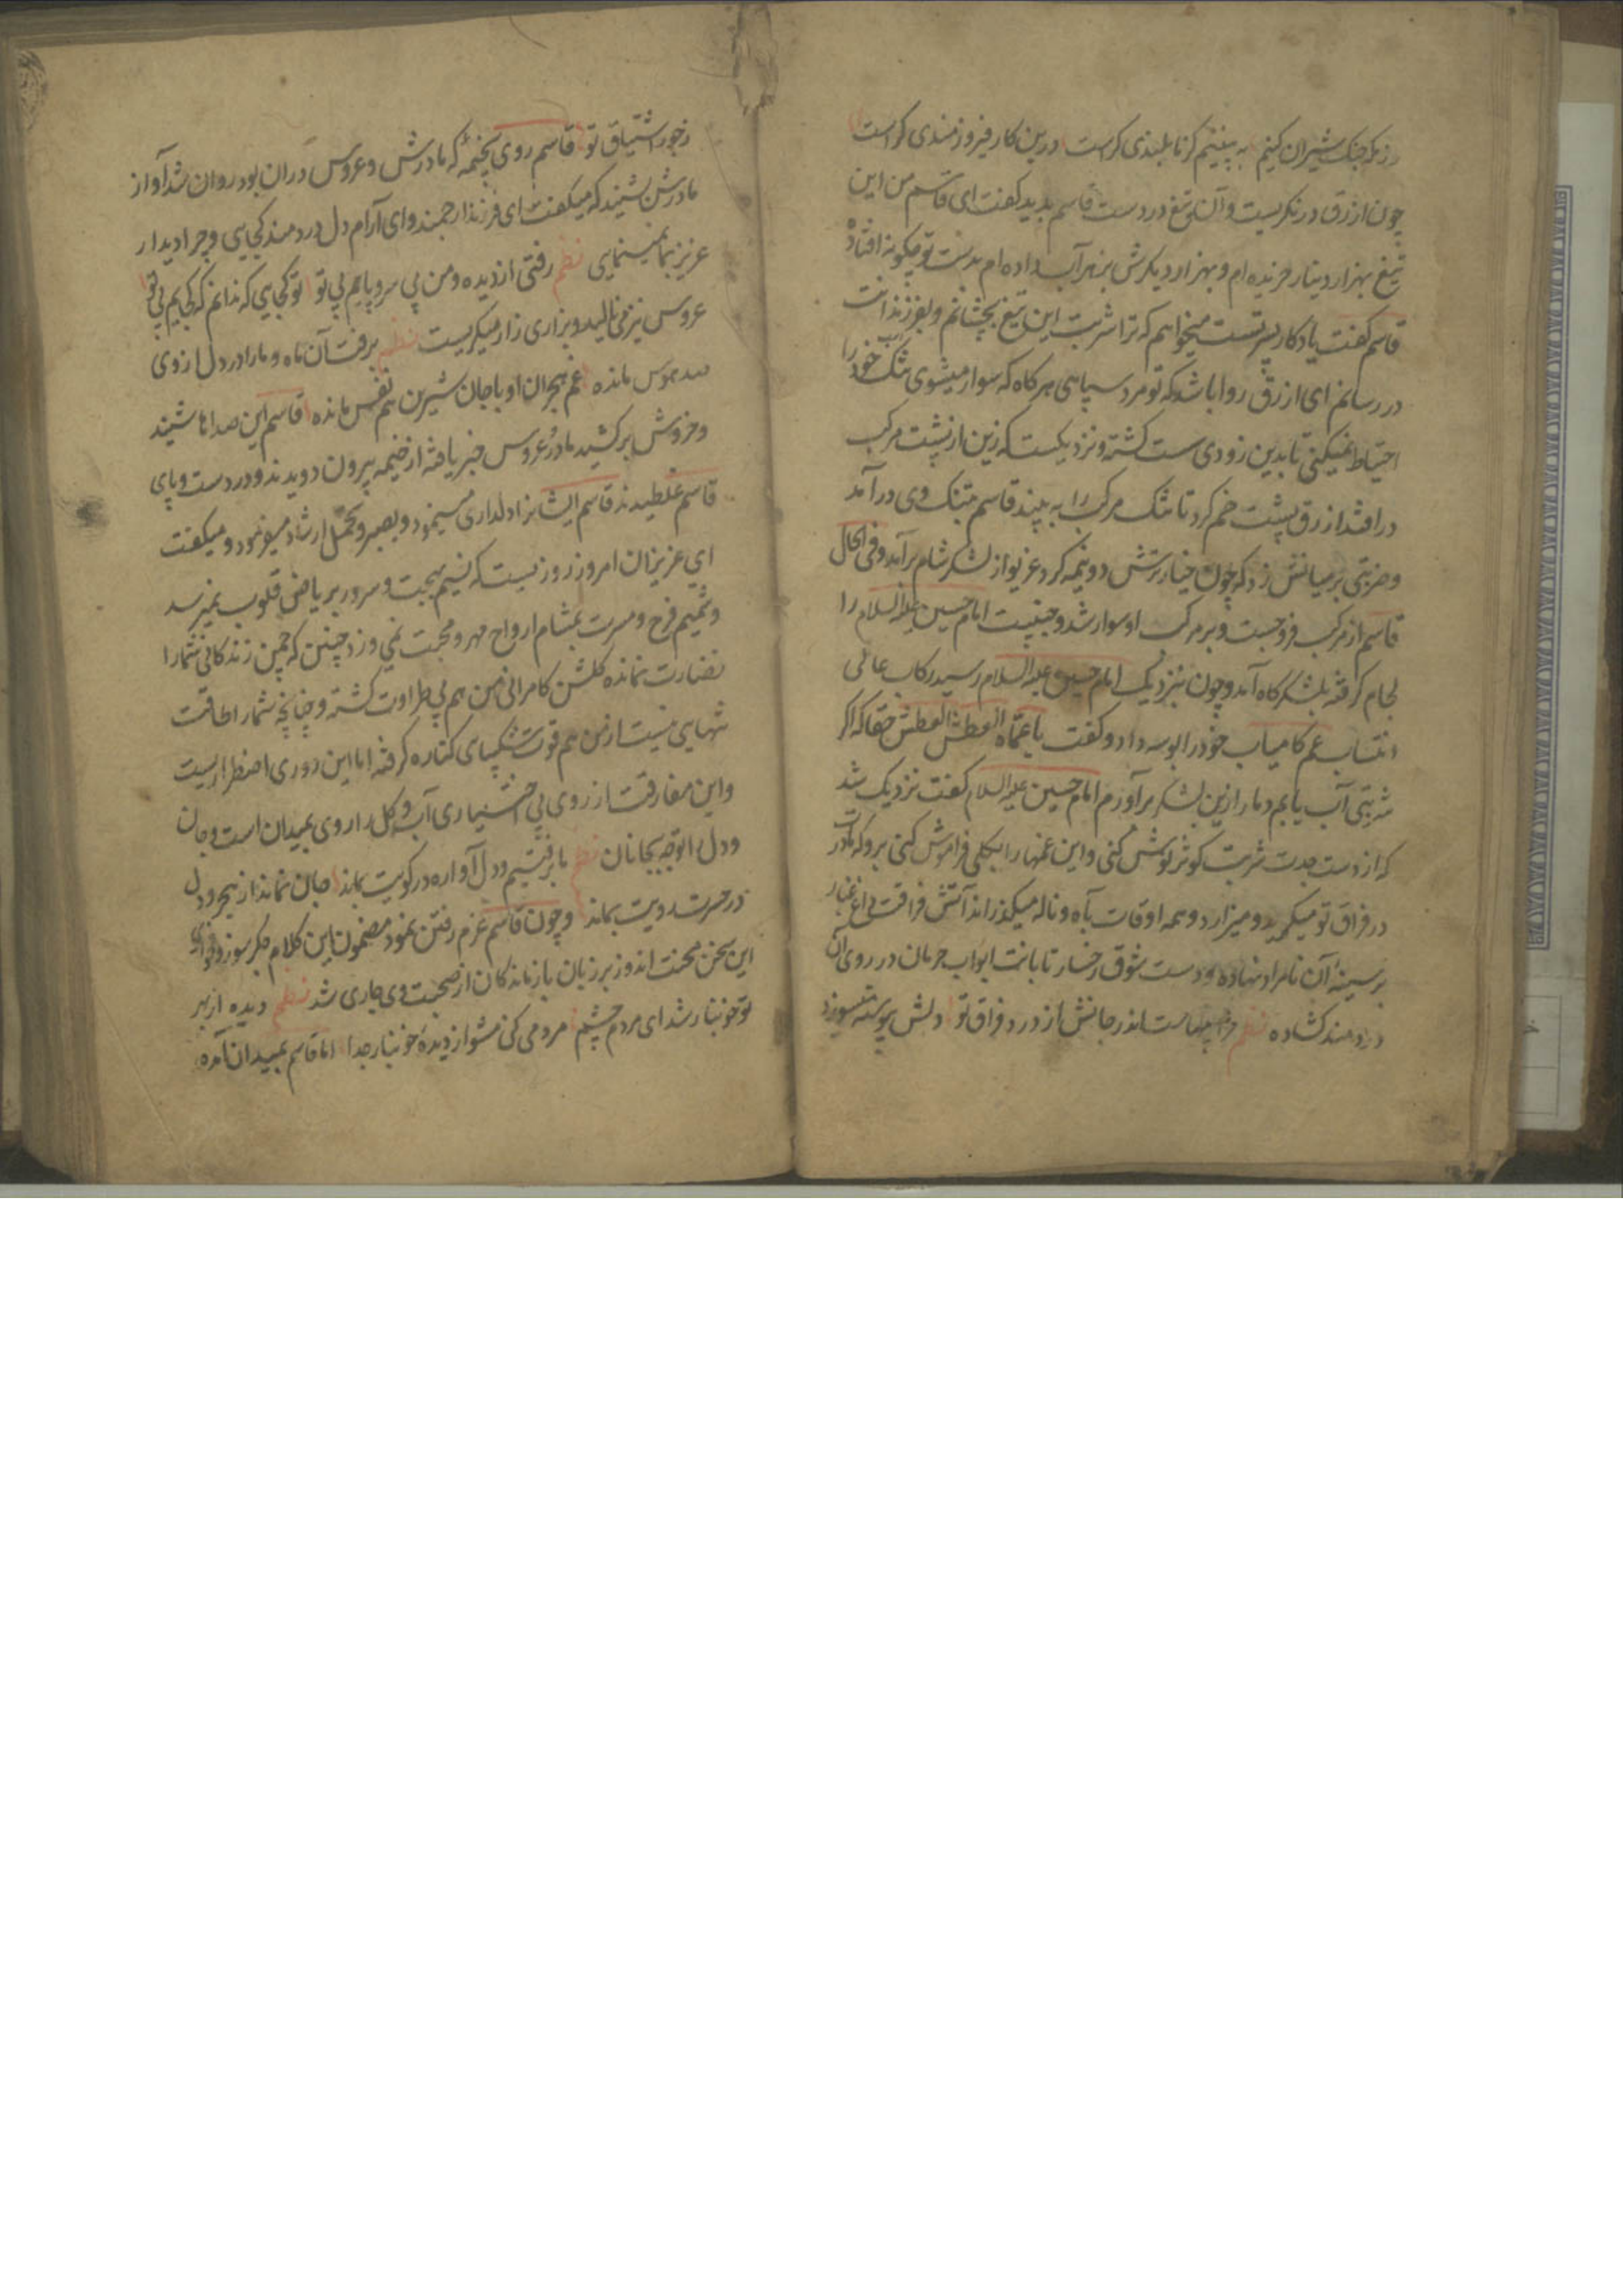 رزمگه جنگ شیران کنیم به بینیم کز ما بلندی کراست درین کار فیروزمندی کراست
چون ازرق در نکریست و آن تیغ در دست قاسم بدید کفت ای قاسم من این
تیغ بهزار دینار خریده ام و بهزار دیکرش بزهر آب داده ام بدست تو چکونه افتاده
قاسم کفت یادکار پسر تست میخواهم که ترا شربت این تیغ بچشانم و بفرزندانت
در رسانم ای ازرق روا باشد که تو مرد سپاهی هر کاه که سوار میشوی تنک خود را
احتیاط نمیکنی تا بدین زودی سست کشته و نزدیکست که زین از پشت مرکب
در افتد ازرق پشت خم کرد تا تنک مرکب را به بیند قاسم بتنک وی در آمد
و ضربتی بر میانش زد که چون خیار ترش دو نیمه کرد غریو از لشکر شام برآمد و فی الحال
قاسم از مرکب فرو جست و بر مرکب او سوار شد و جنیبت امام حسین علیه السلام را
لجام کرفته بلشکرکاه آمد و چون بنزدیک امام حسین علیه السلام رسید رکاب عالی
انتساب عم کامیاب خود را بوسه داد و کفت یا عماه العطش العطش حقا که اکر
شربتی آب یابم دمار ازین لشکر برآورم امام حسین علیه السلام کفت نزدیک شد
که از دست جدت شربت کوثر نوش کنی و این غمها را بکلی فراموش کنی برو که مادرت
در فراق تو میکرید و میزارد و همه اوقات بآه و ناله میکذراند آتش فراقت داغ
بر سینهٔ آن نامراد نهاده و دست شوق رخسار تابانت ابواب حرمان در روی آن
دردمند کشاده نظم اندر جانش از درد فراق تو دلش پیوسته میسوزد
ز جور اشتیاق تو قاسم روی بخیمه که مادرش و عروس دران بود روان شد آواز
مادرش شنید که میکفت ای فرزند ارجمند و ای آرام دل دردمند کجایی و چرا دیدار
عزیز بما نمینمایی نظم رفتی از دیده و من بی سر و پایم بی تو تو کجایی که ندانم که کجایم بی تو
عروس نیز می نالید و بزاری زار میکریست نظم برفت آن ماه و ما را در دل از وی
صد هوس مانده غم هجران او با جان شیرین هم نفس مانده قاسم این صداها شنید
و خروش برکشید مادر و عروس خبر یافته از خیمه بیرون دویدند و در دست و پای
قاسم غلطیدند قاسم ایشانرا دلداری مینمود و بصبر و تحمل ارشاد میفرمود و میکفت
ای عزیزان امروز روزیست که نسیم بهجت و سرور بر ریاض قلوب نمیرسد
و شمیم فرح و مسرت بمشام ارواح مهر و محبت نمی وزد چنین که چمن زندکانی شما را
نضارت نمانده کلشن کامرانی من هم بی طراوت کشته و چنانچه شما را طاقت
تنهایی نیست از من هم قوت شکیبای کناره کرفته اما این دوری اضطراریست
و این مفارقت از روی بی اختیاری آب و کل را روی بمیدان است و جان
و دل را توجه بجانان نظم ما برفتیم و دل آواره در کویت بماند جان نماند از هجر و دل
در حسرت رویت بماند و چون قاسم عزم رفتن نمود مضمون این کلام جکرسوز و فحوای
این سخن محنت اندوز بر زبان بازماندکان از صحبت وی جاری شد نظم دیده از بهر
تو خونبار شد ای مردم چشم مردمی کن مشو از دیدهٔ خونبار جدا اما قاسم بمیدان آمده